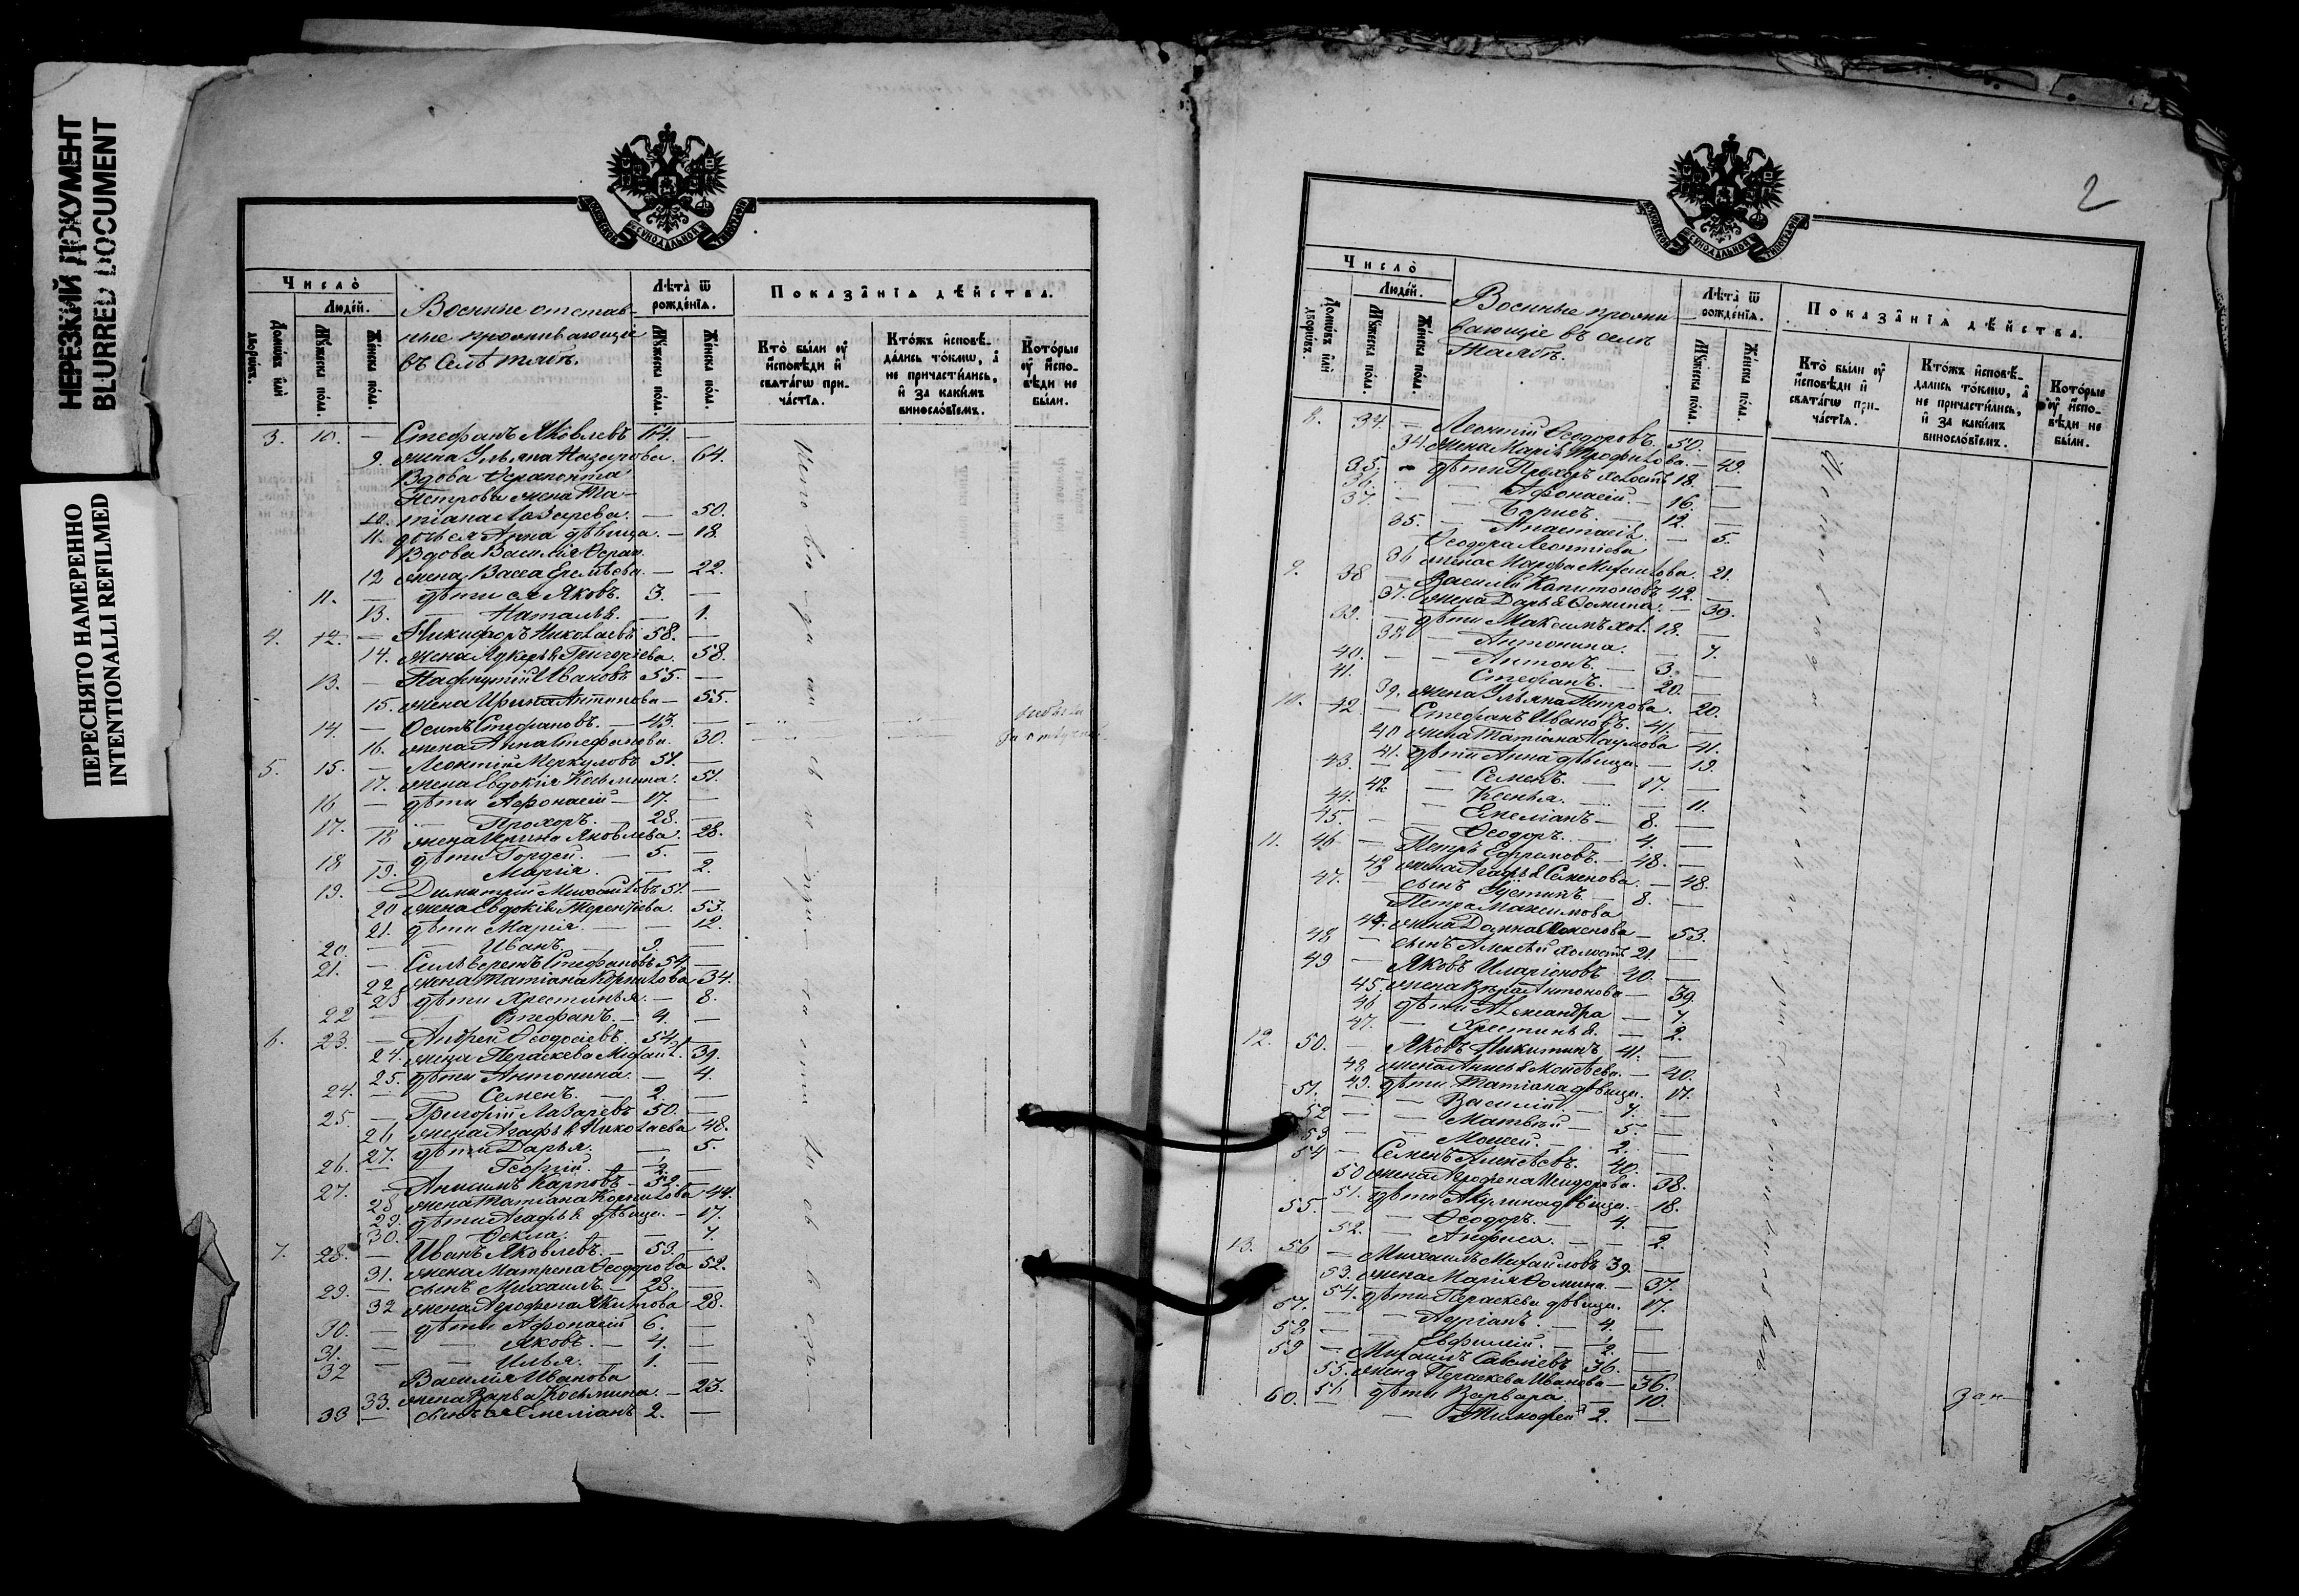 НЕРЕЗКИЙ ДОКУМЕНТ
BLURRED DOCUMENT
ПЕРЕСНЯТО НАМЕРЕННО
INTENTIONALLI REFILMED
МОСКОВСКОЙ СѴНОДАЛЬНОЙ ТИПОГРАФІИ
Число̀
Людей.
Домѡвъ илй дворѡвъ.
Мꙋжеска пола.
Женска пола.
Военные отстав-
ные проживающіе
въ Селѣ
Лѣта̀ ѿ
рождéнїѧ.
Мꙋжеска пола.
Женска пола.
Показáнїѧ дѣ́йства.
Кто̀ бы́ли оу҆ и҆спов́ѣди и҆ свѧтáгѡ причáстїѧ.
Кто́жъ и҆спов́ѣдались то́кмѡ, а҆ не причасти́лись, и҆ за каки́мъ винослóвїемъ.
Кото́рые оу҆ и҆спов́ѣди не бы́ли.
3. 10. — Стефанъ Яковлевъ 64. —
9. жена Ульяна Назарова. 64.
Вдова Ѳерапонта
Петрова жена Та-
10. тіана Лазарева. — 50.
11. дочь ея Анна дѣвица. — 18.
Вдова Василія Ѳерап.
12 жена Васса Еремѣева. — 22.
11. — дѣти ея Яковъ. 3. —
13. — Наталья. — 1.
4. 12. — Никифоръ Николаевъ 58. —
14. жена Лукерья Григорьева. 58.
13. — Пафнутій Ивановъ 55. —
15. жена Ирина Антипова — 55.
14. — Осипъ Стефановъ. — 43. —
16. жена Анна Стефанова. 30.
5. 15. — Леонтій Меркуловъ 51. —
17. жена Евдокія Козьмина. 51.
16 — дѣти Аѳонасій — 17. —
17. — Прохоръ. — 28. —
18 жена Ирина Яковлева. 28.
18 — дѣти Гордей. — 5. —
19. Марія. — 2.
19. — Димитрій Михаиловъ 51. —
20 жена Евдокія Терентіева. 53.
21. дѣти Марія. — — 12.
20. — — Иванъ. — 9. —
21. — Сильверстъ Стефановъ 54. —
22 жена Татіана Корнилова 34.
23 дѣти Христинья. — 8.
22 — — Стефанъ. — 4. —
6. 23. — Андрей Ѳеодосіевъ. 54. —
24. жена Параскева Михаил. 39.
25. дѣти Антонина. — 4.
24. — — Семенъ. — 2. —
25. — Григорій Лазаревъ 50. —
26 жена Агафья Николаева 48.
27. дѣти Дарья. — 5.
26. — — Георгій.
27. — Анисимъ Карповъ — 52. —
28 жена Татіана Корнилова 44.
29. дѣти Агафья дѣвица. — 17.
30. — Ѳекла. — 7.
7. 28. — Иванъ Яковлевъ. — 53. —
31. жена Матрена Ѳеодорова 52.
29. — сынъ Михаилъ. — 28. —
32 28.
30. — дѣти Аѳонасій 6. —
31. — — Яковъ. — 4. —
32 — — Илья. — 1. —
Василія Иванова
33. жена Варвара Козьмина. — 23.
33 — сынъ ея Емеліанъ 2. —
2
МОСКОВСКОЙ СѴНОДАЛЬНОЙ ТИПОГРАФІИ
Число̀
Людей.
Домѡвъ илй дворѡвъ.
Мꙋжеска пола.
Женска пола.
Военные прожи
вающіе въ селѣ
Лѣта̀ ѿ
рождéнїѧ.
Мꙋжеска пола.
Женска пола.
Показáнїѧ дѣ́йства.
Кто̀ бы́ли оу҆ и҆спов́ѣди и҆ свѧтáгѡ причáстїѧ.
Кто́жъ и҆спов́ѣдались то́кмѡ, а҆ не причасти́лись, и҆ за каки́мъ винослóвїемъ.
Кото́рые оу҆ и҆спов́ѣди не бы́ли.
8. 34. — Леонтій Ѳеодоровъ. 50. —
34. жена Марія Трофилова. — 49.
35. — дѣти Прохоръ холостъ 18. —
36. — — Аѳонасій — 16. —
37. — — Борисъ. 12. —
35. — Анастасія. — 5.
Ѳеодора Леонтіева
36 жена Марѳа Михаилова. 21.
9. 38 — Василій Капитоновъ 42. —
37. жена Дарья Ѳомина. — 39.
39. — дѣти Максимъ хол. 18. —
38 — Антонина. — 7.
40. — — Антонъ. — 3. —
41. Стефанъ. — 20. —
39. жена Ульяна Петрова. 20.
10. 42. — Стефанъ Ивановъ. 41. —
40 жена Татіана Наумова 41.
41. дѣти Анна дѣвица. — 19.
43. — — Семенъ. — 17. —
42 — Ксенья. — 11.
44. — Емеліанъ — 8. —
45. — — Ѳеодоръ. — 4. —
11. 46 — Петръ Ефремовъ. — 48. —
43 жена Агафья Семенова. — 48.
47. — сынъ Іустинъ. 8. —
Петра Максимова
44. жена Домна — 53.
48 — сынъ Алексѣй холостъ 21. —
49 — Яковъ Иларіоновъ 40. —
45. жена Вѣра Антонова — 39.
46 дѣти Александра — 7.
47. — Христинья. — 2.
12. 50. — Яковъ Никитинъ 41. —
48 жена Анисья Моисѣева. — 40.
49. дѣти Татіана дѣвица. 17.
51. — — Василій. — 7. —
52 — — Матвѣй — 5. —
53 — — Моисей. — 2. —
54 — Семенъ Алексѣевъ. 40. —
50 38.
51. дѣти Акулина дѣвица. — 18.
55. — — Ѳеодоръ. — 4. —
52. — Анфиса. — 2.
13. 56 — Михаилъ Михаиловъ 39. —
53. жена Марія Ѳомина. — 37.
54. дѣти Параскева дѣвица. 17.
57. — — Адріанъ. — 4. —
58 — — Евфимій. — 2. —
59 — Михаилъ Савеліевъ 36. —
55. жена Параскева Иванова — 36.
56 дѣти Варвара. — 10.
60. — — Тимофей 2. —